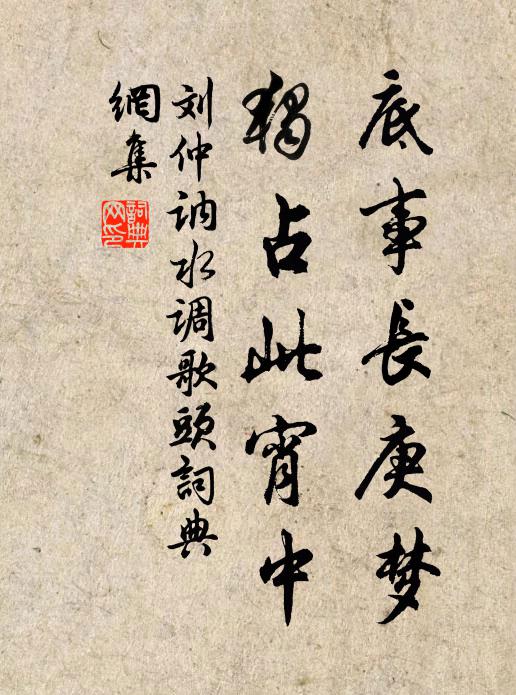 底事長庚梦
獨占此宵中
刘仲讷水调歌頭詞典
網集
詞典
网印